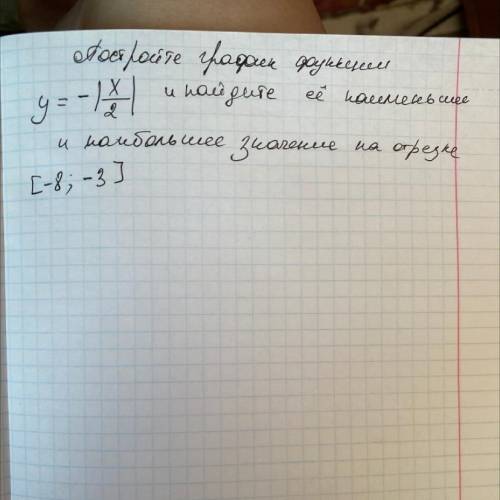 Постройте график функции
y = -|x/2| и найдите её наименьшее
и наибольшее значение на отрезке
[-8; -3]